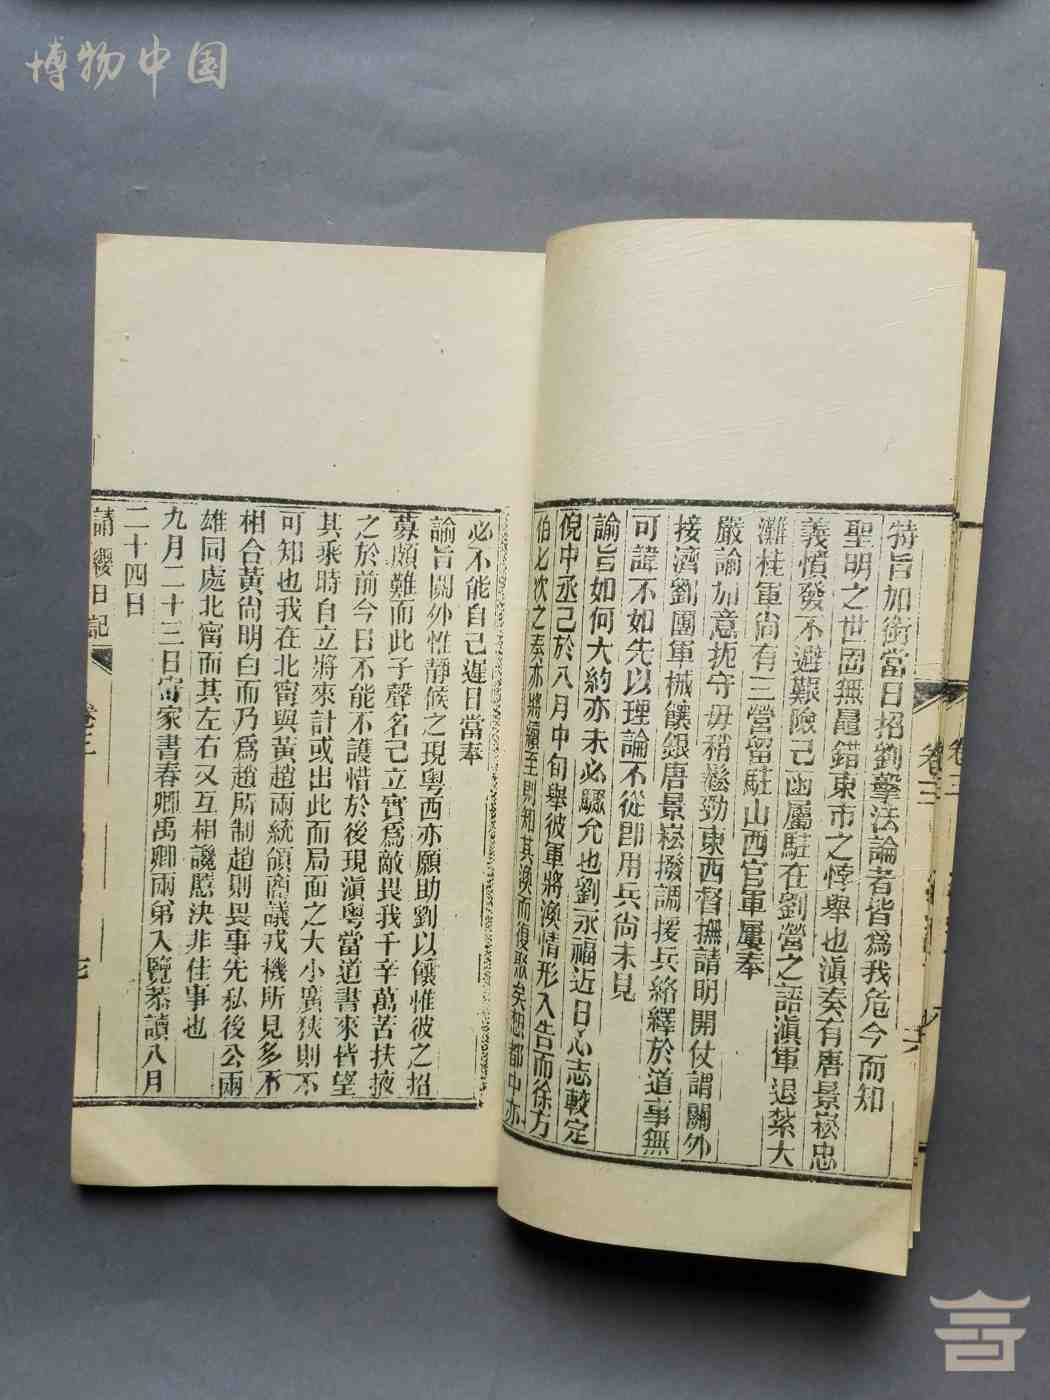 博物中国
特旨加銜當日招劉擊法論者皆爲我危今而知
聖明之世固無鼂錯東市之悖舉也滇奏有唐景崧忠
義憤發不避艱險已函屬駐在劉營之語滇軍退紮大
灘桂軍尚有三營留駐山西官軍屢奉
嚴諭加意扼守毋稍鬆勁東西督撫請明開仗謂關外
接濟劉團軍械饟銀唐景崧撥調援兵絡繹於道事無
可諱不如先以理論不從即用兵尚未見
諭旨如何大約亦未必驟允也劉永福近日心志較定
倪中丞已於八月中旬舉彼軍將渙情形入告而徐方
伯七次之奏亦將續至則知其渙而復聚矣想都中亦
必不能自已遲日當奉
諭旨關外惟靜候之現粵西亦願助劉以饟惟彼之招
募頗難而此子聲名已立實爲敵畏我千辛萬苦扶掖
之於前今日不能不護惜於後現滇粵當道書來皆望
其乘時自立將來計或出此而局面之大小廣狹則不
可知也我在北甯與黃趙兩統領商議戎機所見多不
相合黃尚明白而乃爲趙所制趙則畏事先私後公兩
雄同處北甯而其左右又互相讒慝決非佳事也
九月二十三日寄家書春卿禹卿兩弟入覽恭讀八月
二十四日
請纓日記
卷三
七
卷三
六
卷三